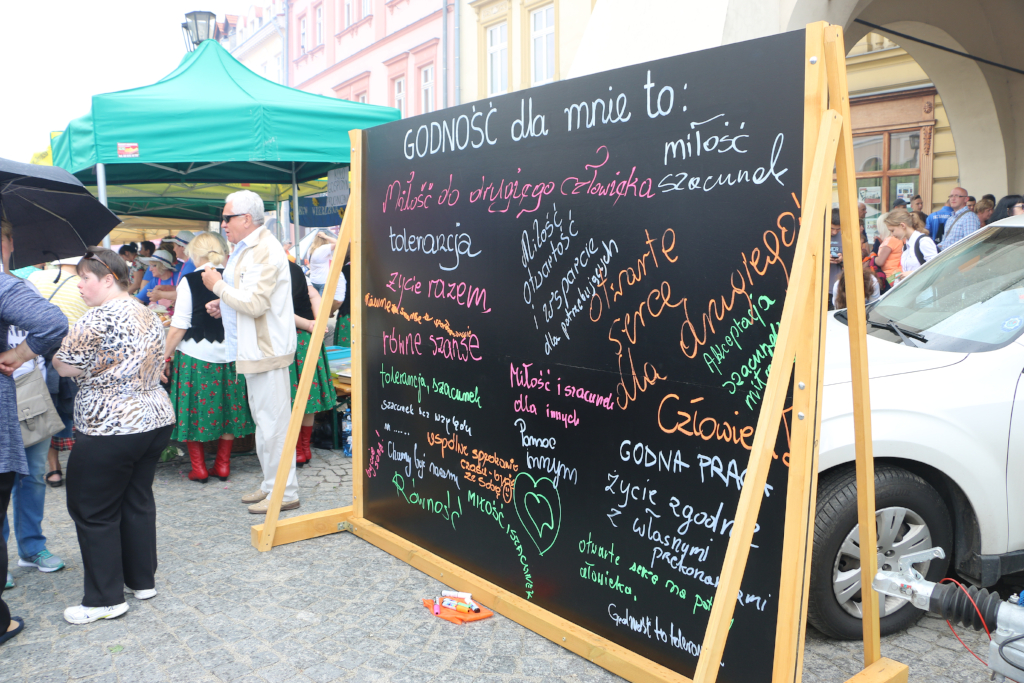 GODNOŚĆ dla mnie to:
Miłość do drugiego człowieka
miłość
szacunek
tolerancja
Miłość
otwartość
i wsparcie
dla potrzebujących
Otwarte
serce
dla drugiego!
życie razem
równe szanse
Akceptacja
szacunek
tolerancja, szacunek
Miłość i szacunek
dla innych
Człowie
szacunek bez względu
na ......
Pomoc
innym
wspólne spędzanie
czasu i bycie
ze sobą
GODNA PRACA
Chcemy być razem
Równość
MIŁOŚĆ I SZACUNEK
życie zgodnie
z własnymi
przekonaniami
otwarte serce na
człowieka.
Godność to